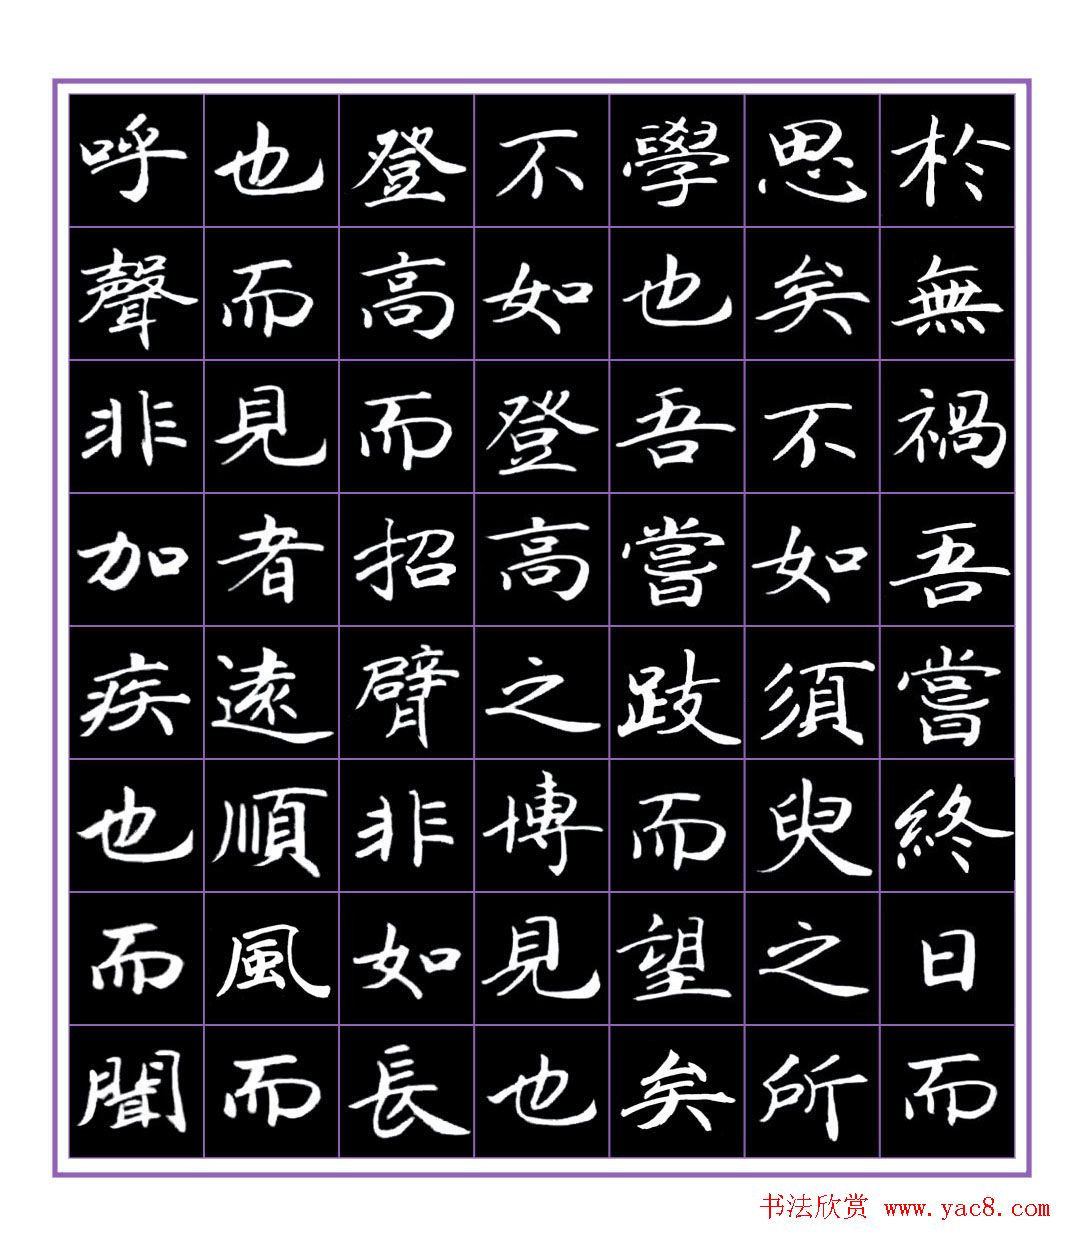 於無禍吾嘗終日而
思矣不如須臾之所
學也吾嘗跂而望矣
不如登高之博見也
登高而招臂非如長
也而見者遠順風而
呼聲非加疾也而聞
书法欣赏 www.yac8.com